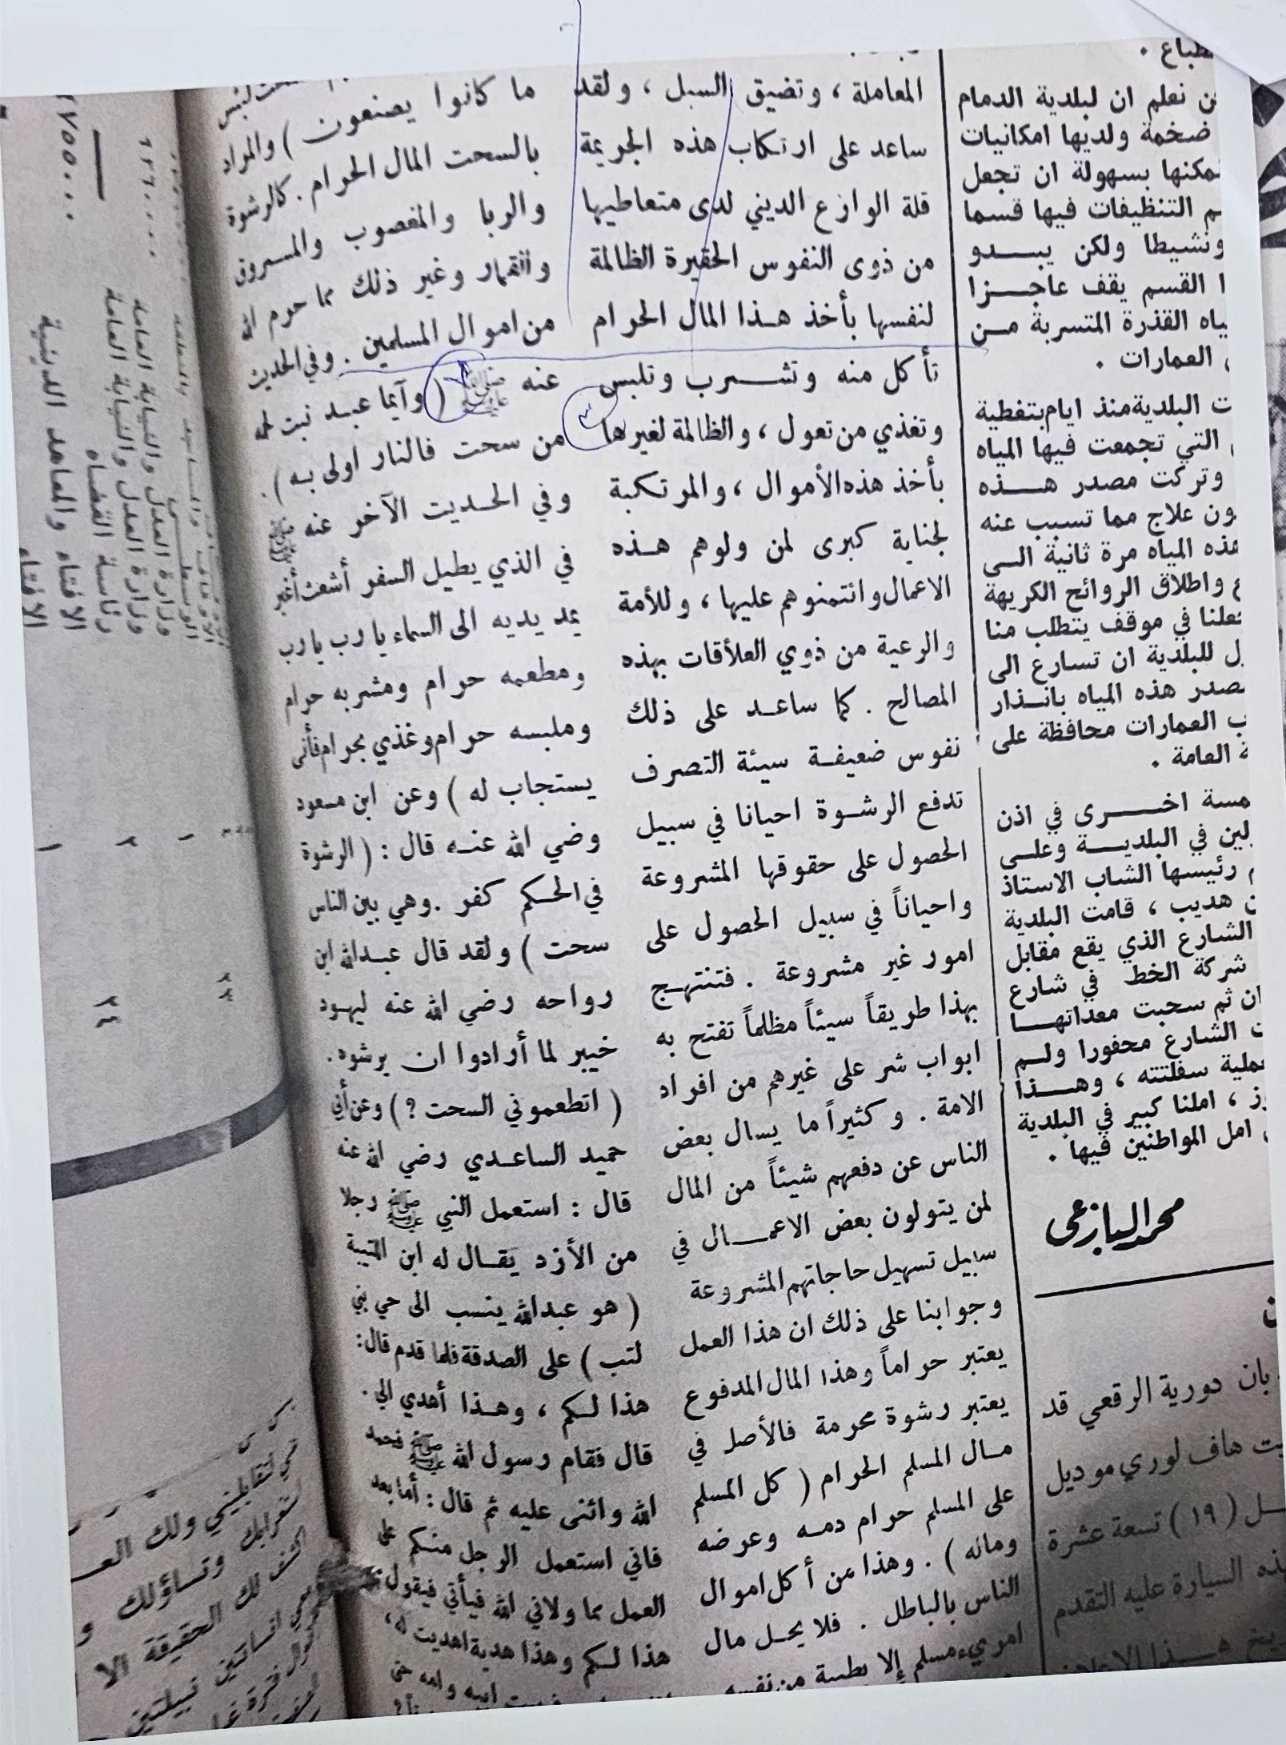 ـطباع .
ن نعلم ان لبلدية الدمام
ضخمة ولديها امكانيات
مكنها بسهولة ان تجعل
م التنظيفات فيها قسما
ونشيطا ولكن يبــدو
ا القسم يقف عاجــزا
ياه القذرة المتسربة مـن
العمارات .
ت البلدية منذ ايام بتغطية
التي تجمعت فيها المياه
وتركت مصدر هــذه
ون علاج مما تسبب عنه
هذه المياه مرة ثانية الـى
ع واطلاق الروائح الكريهة
جعلنا في موقف يتطلب منا
ل للبلدية ان تسارع الى
صدر هذه المياه بانـذار
ب العمارات محافظة على
ة العامة .
مسة اخــرى في اذن
لين في البلديــة وعلـى
م رئيسها الشاب الاستاذ
ن هديب ، قامت البلدية
الشارع الذي يقع مقابل
شركة الخط في شارع
ان ثم سحبت معداتهــا
ت الشارع محفورا ولـم
عملية سفلتته ، وهــذا
وز ، املنا كبير في البلدية
امل المواطنين فيها .
محمد البازعي
بان دورية الرقعي قد
يت هاف لوري موديل
ـل ( ١٩ ) تسعة عشرة
هذه السيارة عليه التقدم
المعاملة ، وتضيق السبل ، ولقد
ساعد على ارتكاب هذه الجريمة
قلة الوازع الديني لدى متعاطيها
من ذوى النفوس الحقيرة الظالمة
لنفسها بأخذ هـذا المال الحرام
تأكل منه وتشـرب وتلبس
وتغذي من تعول ، والظالمة لغيرها
بأخذ هذه الأموال ، والمرتكبة
لجناية كبرى لمن ولوهم هـذه
الاعمال وائتمنوهم عليها ، وللأمة
والرعية من ذوي العلاقات بهذه
المصالح . كما ساعـد على ذلك
نفوس ضعيفـة سيئة التصرف
تدفع الرشـوة احيانا في سبيل
الحصول على حقوقها المشروعة
واحياناً في سبيل الحصول على
امور غير مشروعة . فتنتهـج
بهذا طريقاً سيئاً مظلماً تفتح به
ابواب شر على غيرهم من افراد
الامة . وكثيراً ما يسال بعض
الناس عن دفعهم شيئاً من المال
لمن يتولون بعض الاعمــال في
سبيل تسهيل حاجاتهم المشروعة
وجوابنا على ذلك ان هذا العمل
يعتبر حراماً وهذا المال المدفوع
يعتبر رشوة محرمة فالأصل في
مـال المسلم الحرام ( كل المسلم
على المسلم حرام دمـه وعرضه
وماله ) . وهذا من أكل اموال
الناس بالباطل . فلا يحـل مال
امرىء مسلم إلا بطيبة من نفسه
ما كانوا يصنعون ) والمراد
بالسحت المال الحرام . كالرشوة
والربا والمغصوب والمسروق
والقمار وغير ذلك مما حرم الله
من اموال المسلمين . وفي الحديث
عنه ﷺ ( وآيما عبـد نبت لحمه
من سحت فالنار اولى بـه ) .
وفي الحـديث الآخر عنه ﷺ
في الذي يطيل السفر أشعث أغبر
يمد يديه الى السماء يارب يارب
ومطعمه حرام ومشربه حرام
وملبسه حرام وغذي بحرام فأنى
يستجاب له ) وعن ابن مسعود
رضي الله عنـه قال : ( الرشوة
في الحـكم كفر . وهي بين الناس
سحت ) ولقد قال عبـدالله ابن
رواحه رضي الله عنه ليهـود
خيبر لما أرادوا ان يرشوه .
( اتطعموني السحت ? ) وعن أبي
حميد الساعـدي رضي الله عنه
قال : استعمل النبي ﷺ رجلا
من الأزد يقـال له ابن اللتيبة
( هو عبدالله ينسب الى حي بني
لتب ) على الصدقة فلما قدم قال :
هذا لـكم ، وهـذا أهدي الي .
قال فقام رسول الله ﷺ فحمد
الله واثنى عليه ثم قال : أما بعد
فاني استعمل الرجل منـكم على
العمل مما ولاني الله فيأتي فيقول
هذا لـكم وهذا هدية اهديت لي ،
وزارة العدل والنيابة العامة
وزارة العدل والنيابة العامة
رئاسة القضاه
الافتاء والمعاهد الدينية